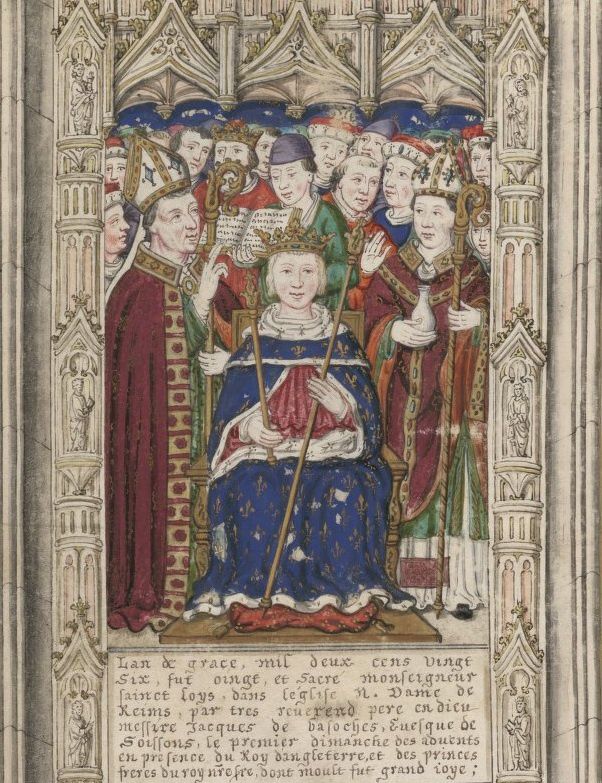 Lan de grace, mil deux cens vingt
six, fut oingt, et sacre monseigneur
sainct Loys, dans leglise N. Dame de
Reims, par tres reuerend pere en dieu
messire Jacques de basoches, Euesque de
Soissons, le premier dimanche des aduents
en presence du Roy dangleterre, et des princes
freres du roy nostre, dont moult fut grand ioye;